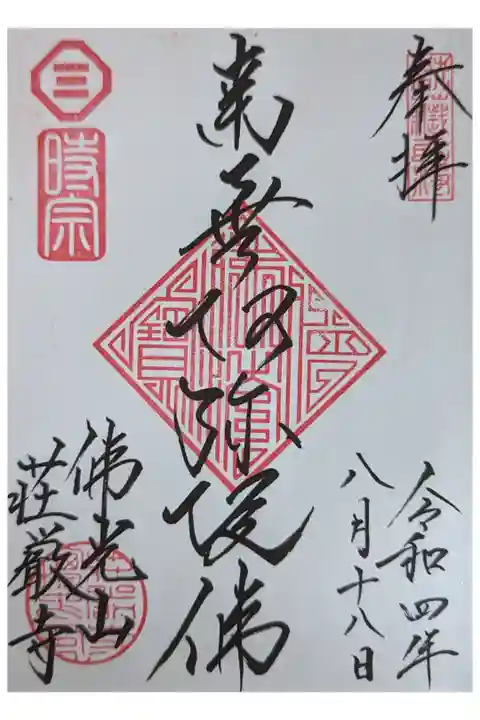 奉拝
令和四年
八月十八日
南無阿弥陀佛
佛光山
荘厳寺
三
時宗